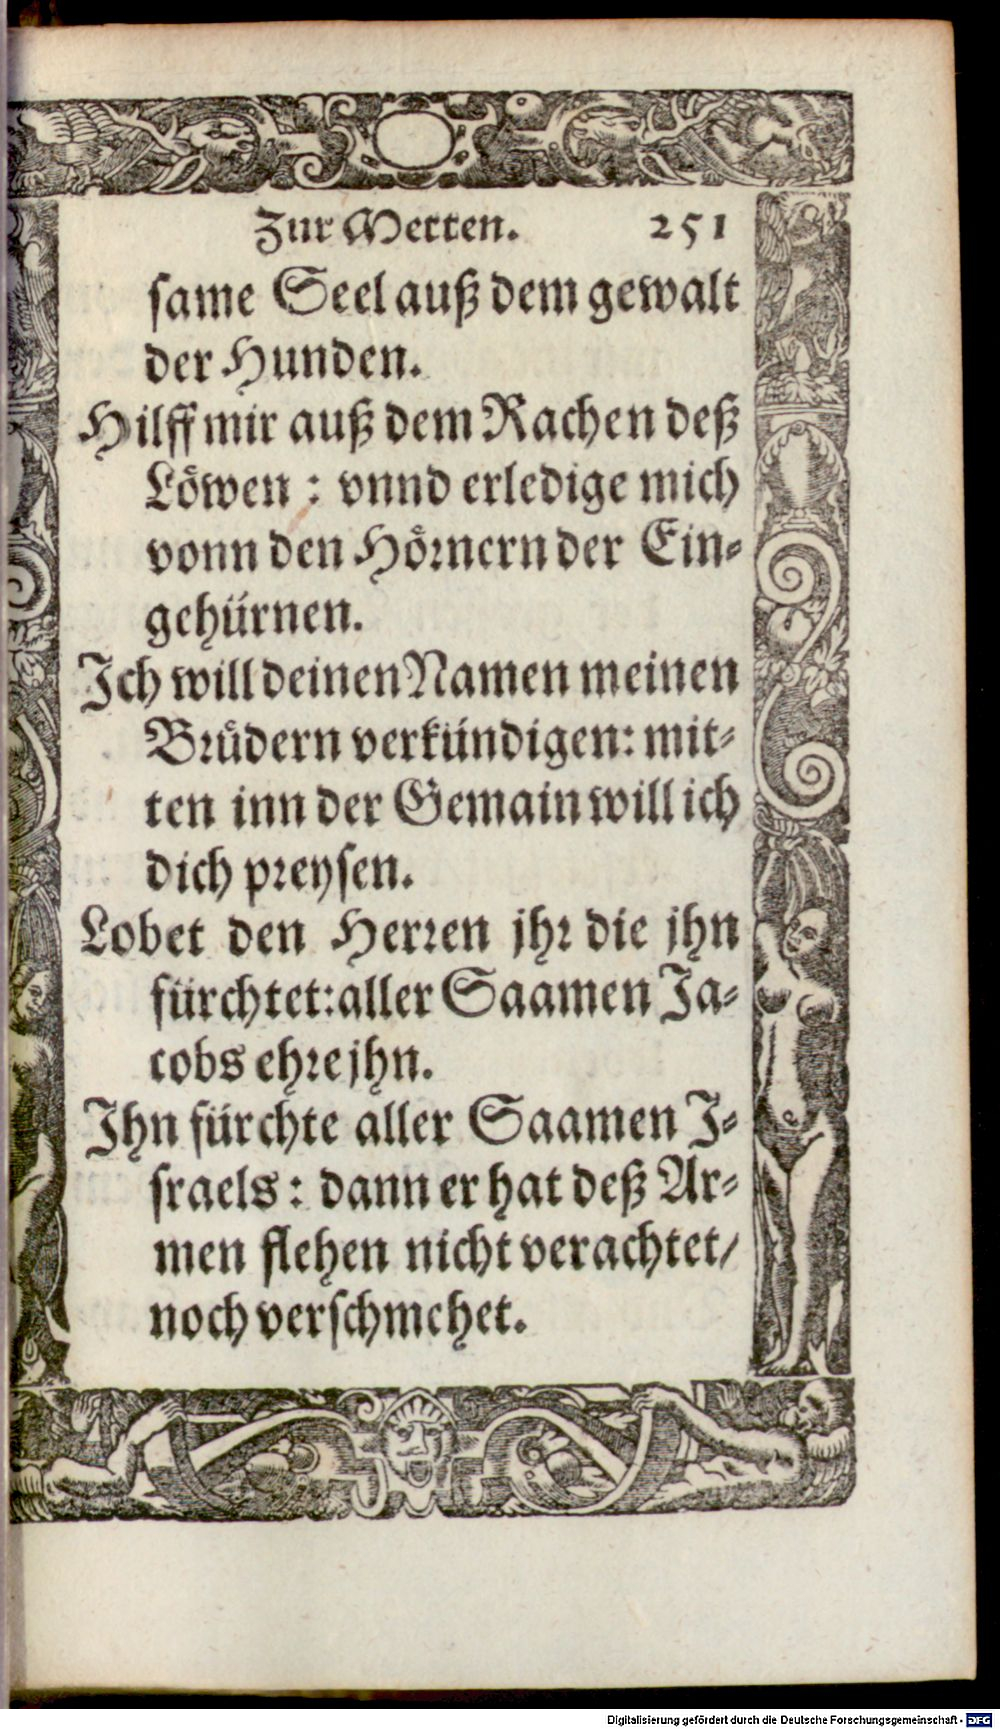 Zur Metten. 251
same Seel auß dem gewalt
der Hunden.
Hilff mir auß dem Rachen deß
Löwen : vnnd erledige mich
vonn den Hörnern der Ein⸗
gehürnen.
Ich will deinen Namen meinen
Brüdern verkündigen: mit⸗
ten inn der Gemain will ich
dich preysen.
Lobet den Herren jhr die jhn
fürchtet: aller Saamen Ja⸗
cobs ehre jhn.
Ihn fürchte aller Saamen J⸗
sraels : dann er hat deß Ar⸗
men flehen nicht verachtet/
noch verschmehet.
Digitalisierung gefördert durch die Deutsche Forschungsgemeinschaft - DFG